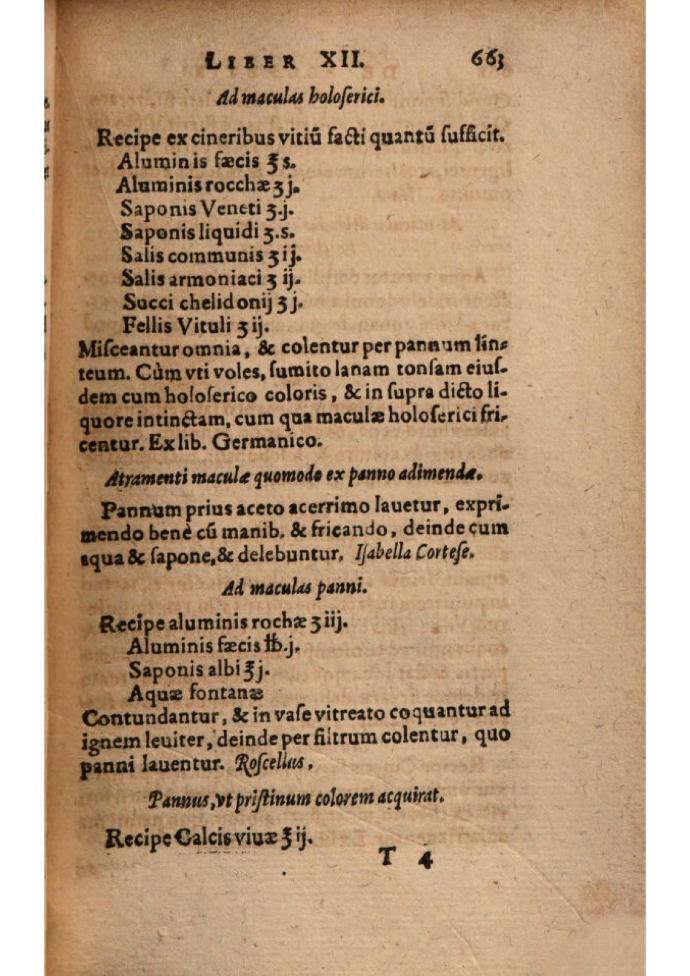 LIBER XII. 663
Ad maculas holoserici.
Recipe ex cineribus vitiū facti quantū sufficit.
Aluminis fæcis ℥ s.
Aluminis rocchæ ʒ j.
Saponis Veneti ʒ.j.
Saponis liquidi ʒ.s.
Salis communis ʒ ij.
Salis armoniaci ʒ ij.
Succi chelidonij ʒ j.
Fellis Vituli ʒ ij.
Misceantur omnia, & colentur per pannum lin-
teum. Cùm vti voles, sumito lanam tonsam eius-
dem cum holoserico coloris, & in supra dicto li-
quore intinctam, cum qua maculæ holoserici fri-
centur. Ex lib. Germanico.
Atramenti maculæ quomodo ex panno adimendæ.
Pannum prius aceto acerrimo lauetur, expri-
mendo benè cū manib. & fricando, deinde cum
aqua & sapone, & delebuntur. Isabella Cortese.
Ad maculas panni.
Recipe aluminis rochæ ʒ iij.
Aluminis fæcis ℔.j.
Saponis albi ℥ j.
Aquæ fontanæ
Contundantur, & in vase vitreato coquantur ad
ignem leuiter, deinde per filtrum colentur, quo
panni lauentur. Roscellus.
Pannus, vt pristinum colorem acquirat.
Recipe Calcis viuæ ℥ ij.
T 4